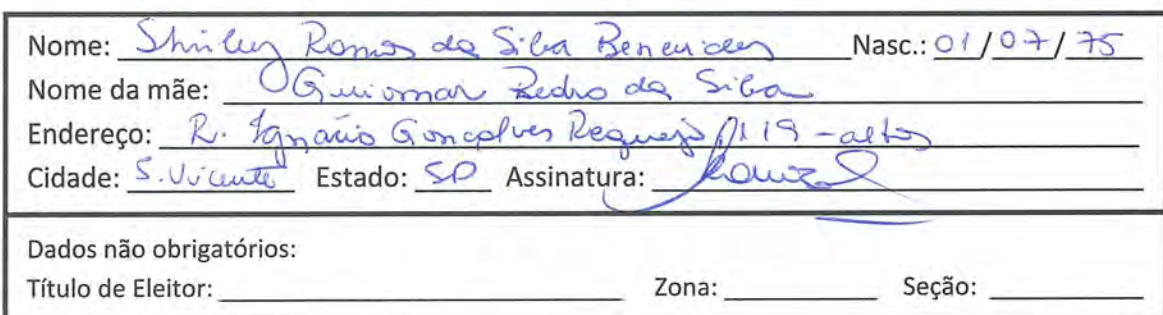 Nome: Shirley Ramos da Silva Benevides Nasc.: 01/07/75
Nome da mãe: Guiomar Pedro da Silva
Endereço: R. Ignácio Gonçalves Requejo 119 - altos
Cidade: S. Vicente Estado: SP Assinatura:
Dados não obrigatórios:
Título de Eleitor: Zona: Seção: